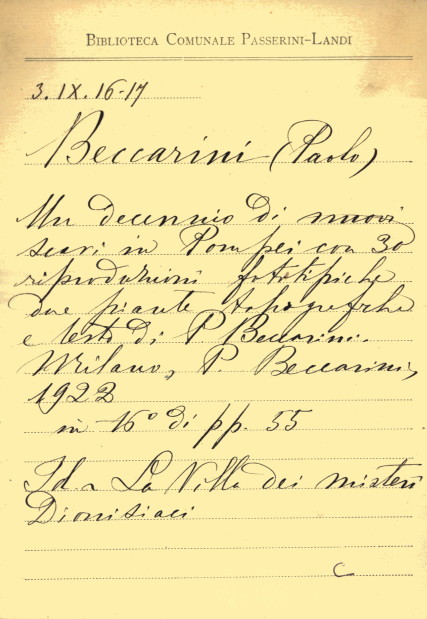 BIBLIOTECA COMUNALE PASSERINI-LANDI
3. IX. 16-17
Beccarini (Paolo)
Un decennio di nuovi
scavi in Pompei con 30
riproduzioni fototipiche
due piante topografiche
e testo di P. Beccarini.
Milano, P. Beccarini,
1922
in 16° di pp. 55
Id - La Villa dei misteri
Dionisiaci
C